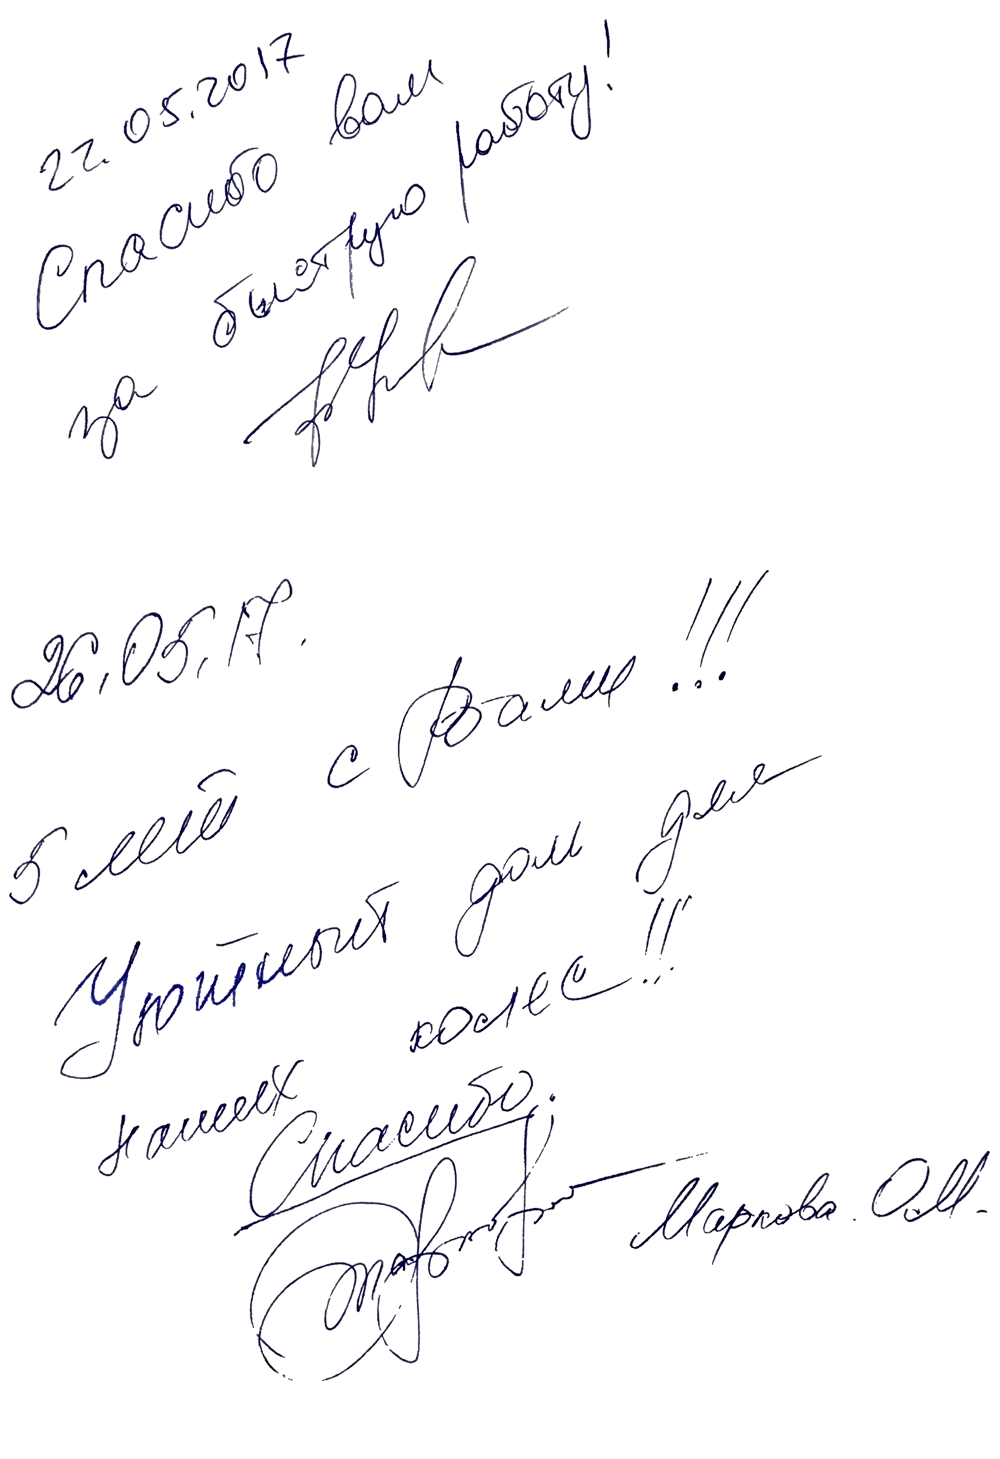 22.05.2017
Спасибо вам
за быструю работу!
26.05.17.
5 лет с Вами!!!
Уютный дом для
наших колес!!!
Спасибо.
Маркова О.М.